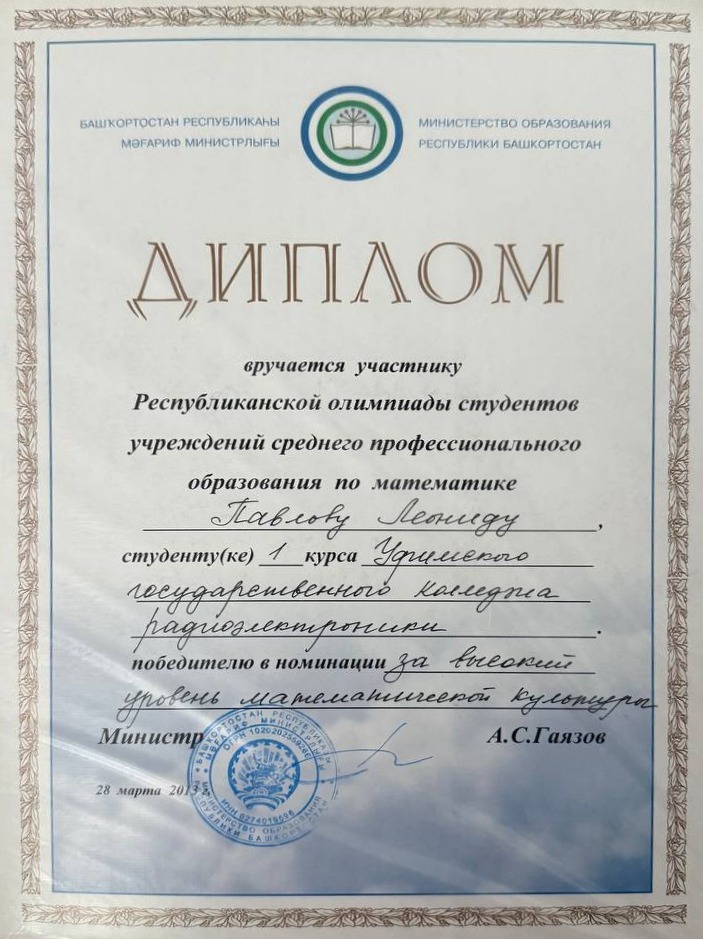 БАШҠОРТОСТАН РЕСПУБЛИКАҺЫ
МӘҒАРИФ МИНИСТРЛЫҒЫ
МИНИСТЕРСТВО ОБРАЗОВАНИЯ
РЕСПУБЛИКИ БАШКОРТОСТАН
ДИПЛОМ
вручается участнику
Республиканской олимпиады студентов
учреждений среднего профессионального
образования по математике
Павлову Леониду,
студенту(ке) 1 курса Уфимского
государственного колледжа
радиоэлектроники.
победителю в номинации за высокий
уровень математической культуры
Министр А.С.Гаязов
28 марта 2013
БАШҠОРТОСТАН РЕСПУБЛИКАҺЫ
МӘҒАРИФ МИНИСТРЛЫҒЫ
МИНИСТЕРСТВО ОБРАЗОВАНИЯ
РЕСПУБЛИКИ БАШКОРТОСТАН
ОГРН
ИНН